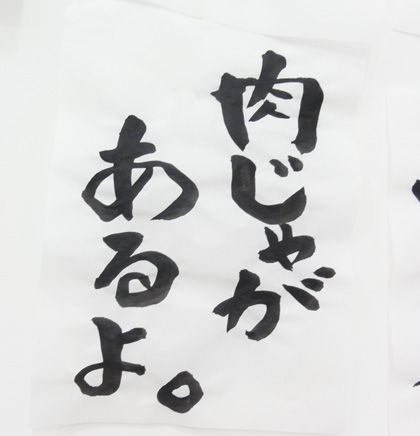 肉じゃが
あるよ。